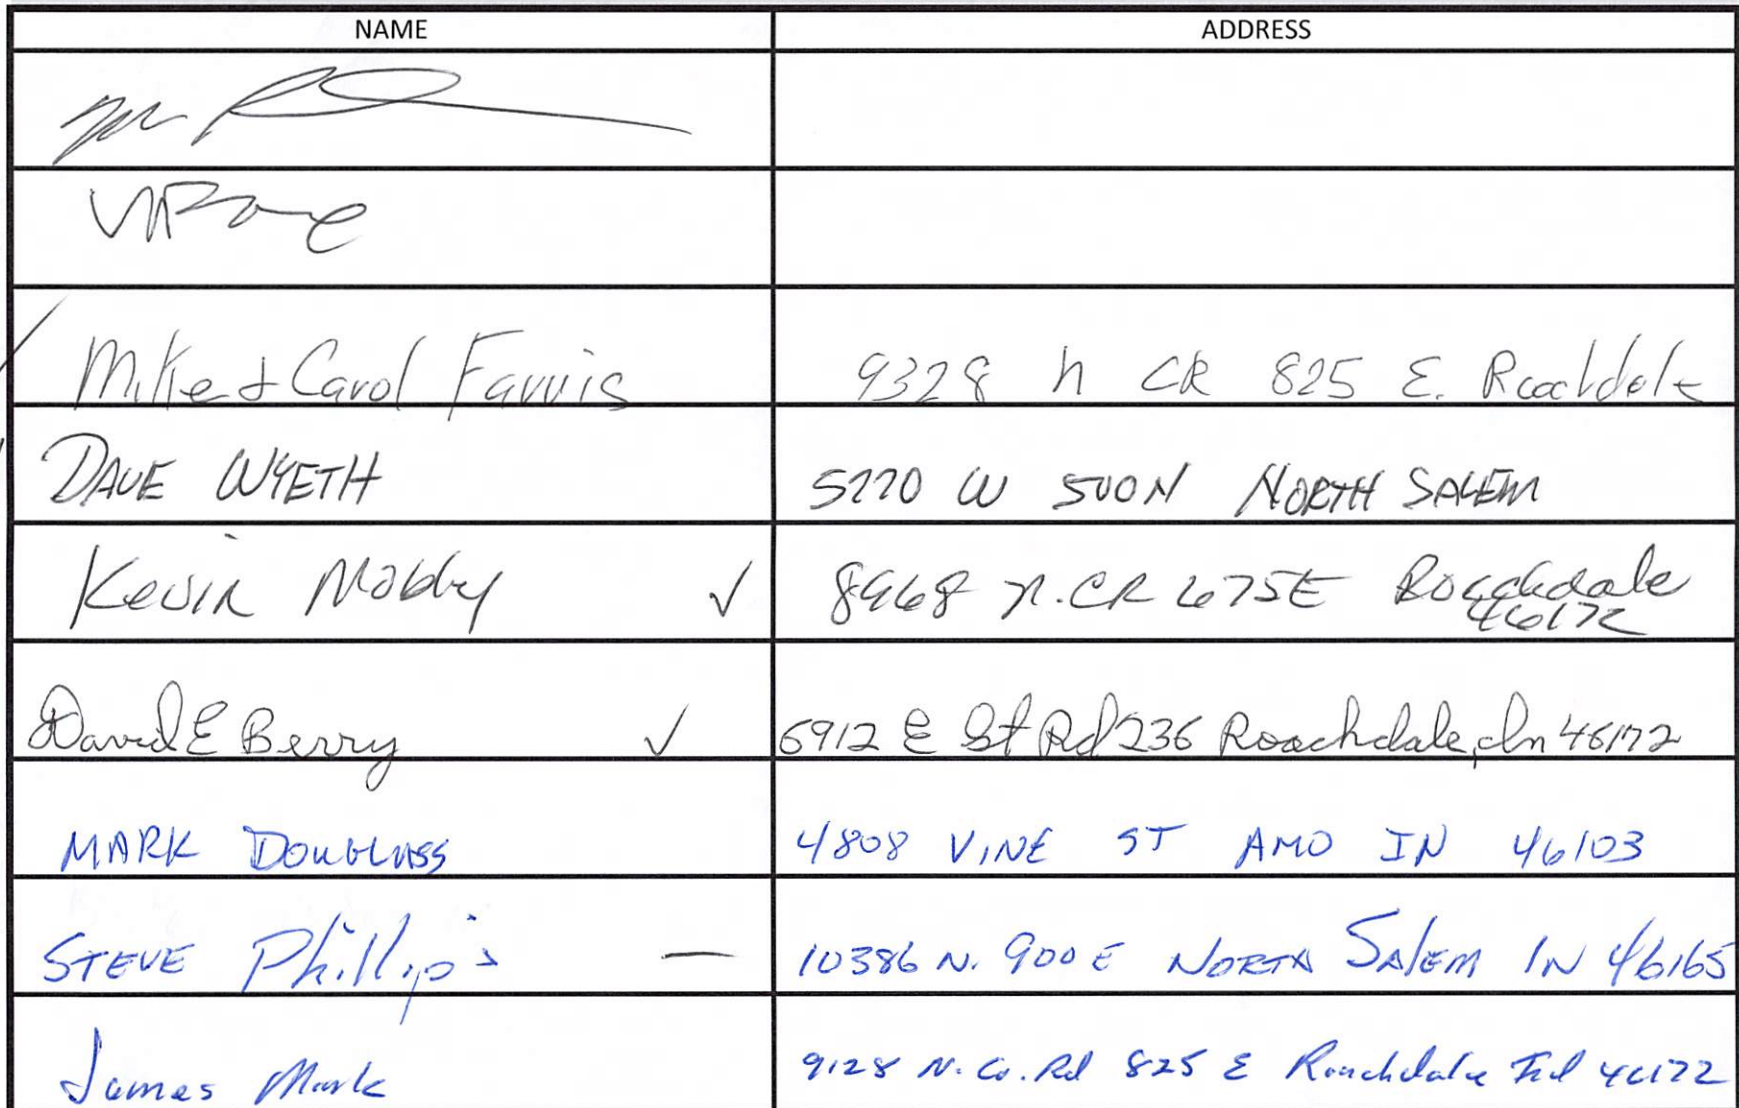 NAME ADDRESS
Mike & Carol Farris 9328 N CR 825 E. Roachdale
DAVE WYETH 5770 W 500 N NORTH SALEM
Kevin Mobby ✓ 8968 N. CR 675E Roachdale
46172
David E Berry ✓ 6912 E St Rd 236 Roachdale, In 46172
MARK DOUGLASS 4808 VINE ST AMO IN 46103
STEVE Phillips — 10386 N. 900 E NORTH SALEM IN 46165
James Mark 9128 N. Co. Rd 825 E Roachdale Ind 46172